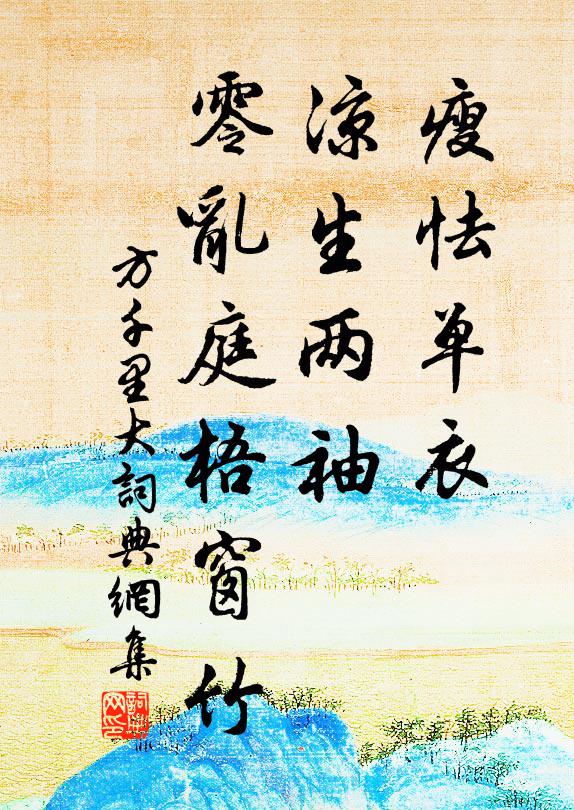 瘦怯单衣
凉生两袖
零亂庭梧窗竹
方千里大詞典網集